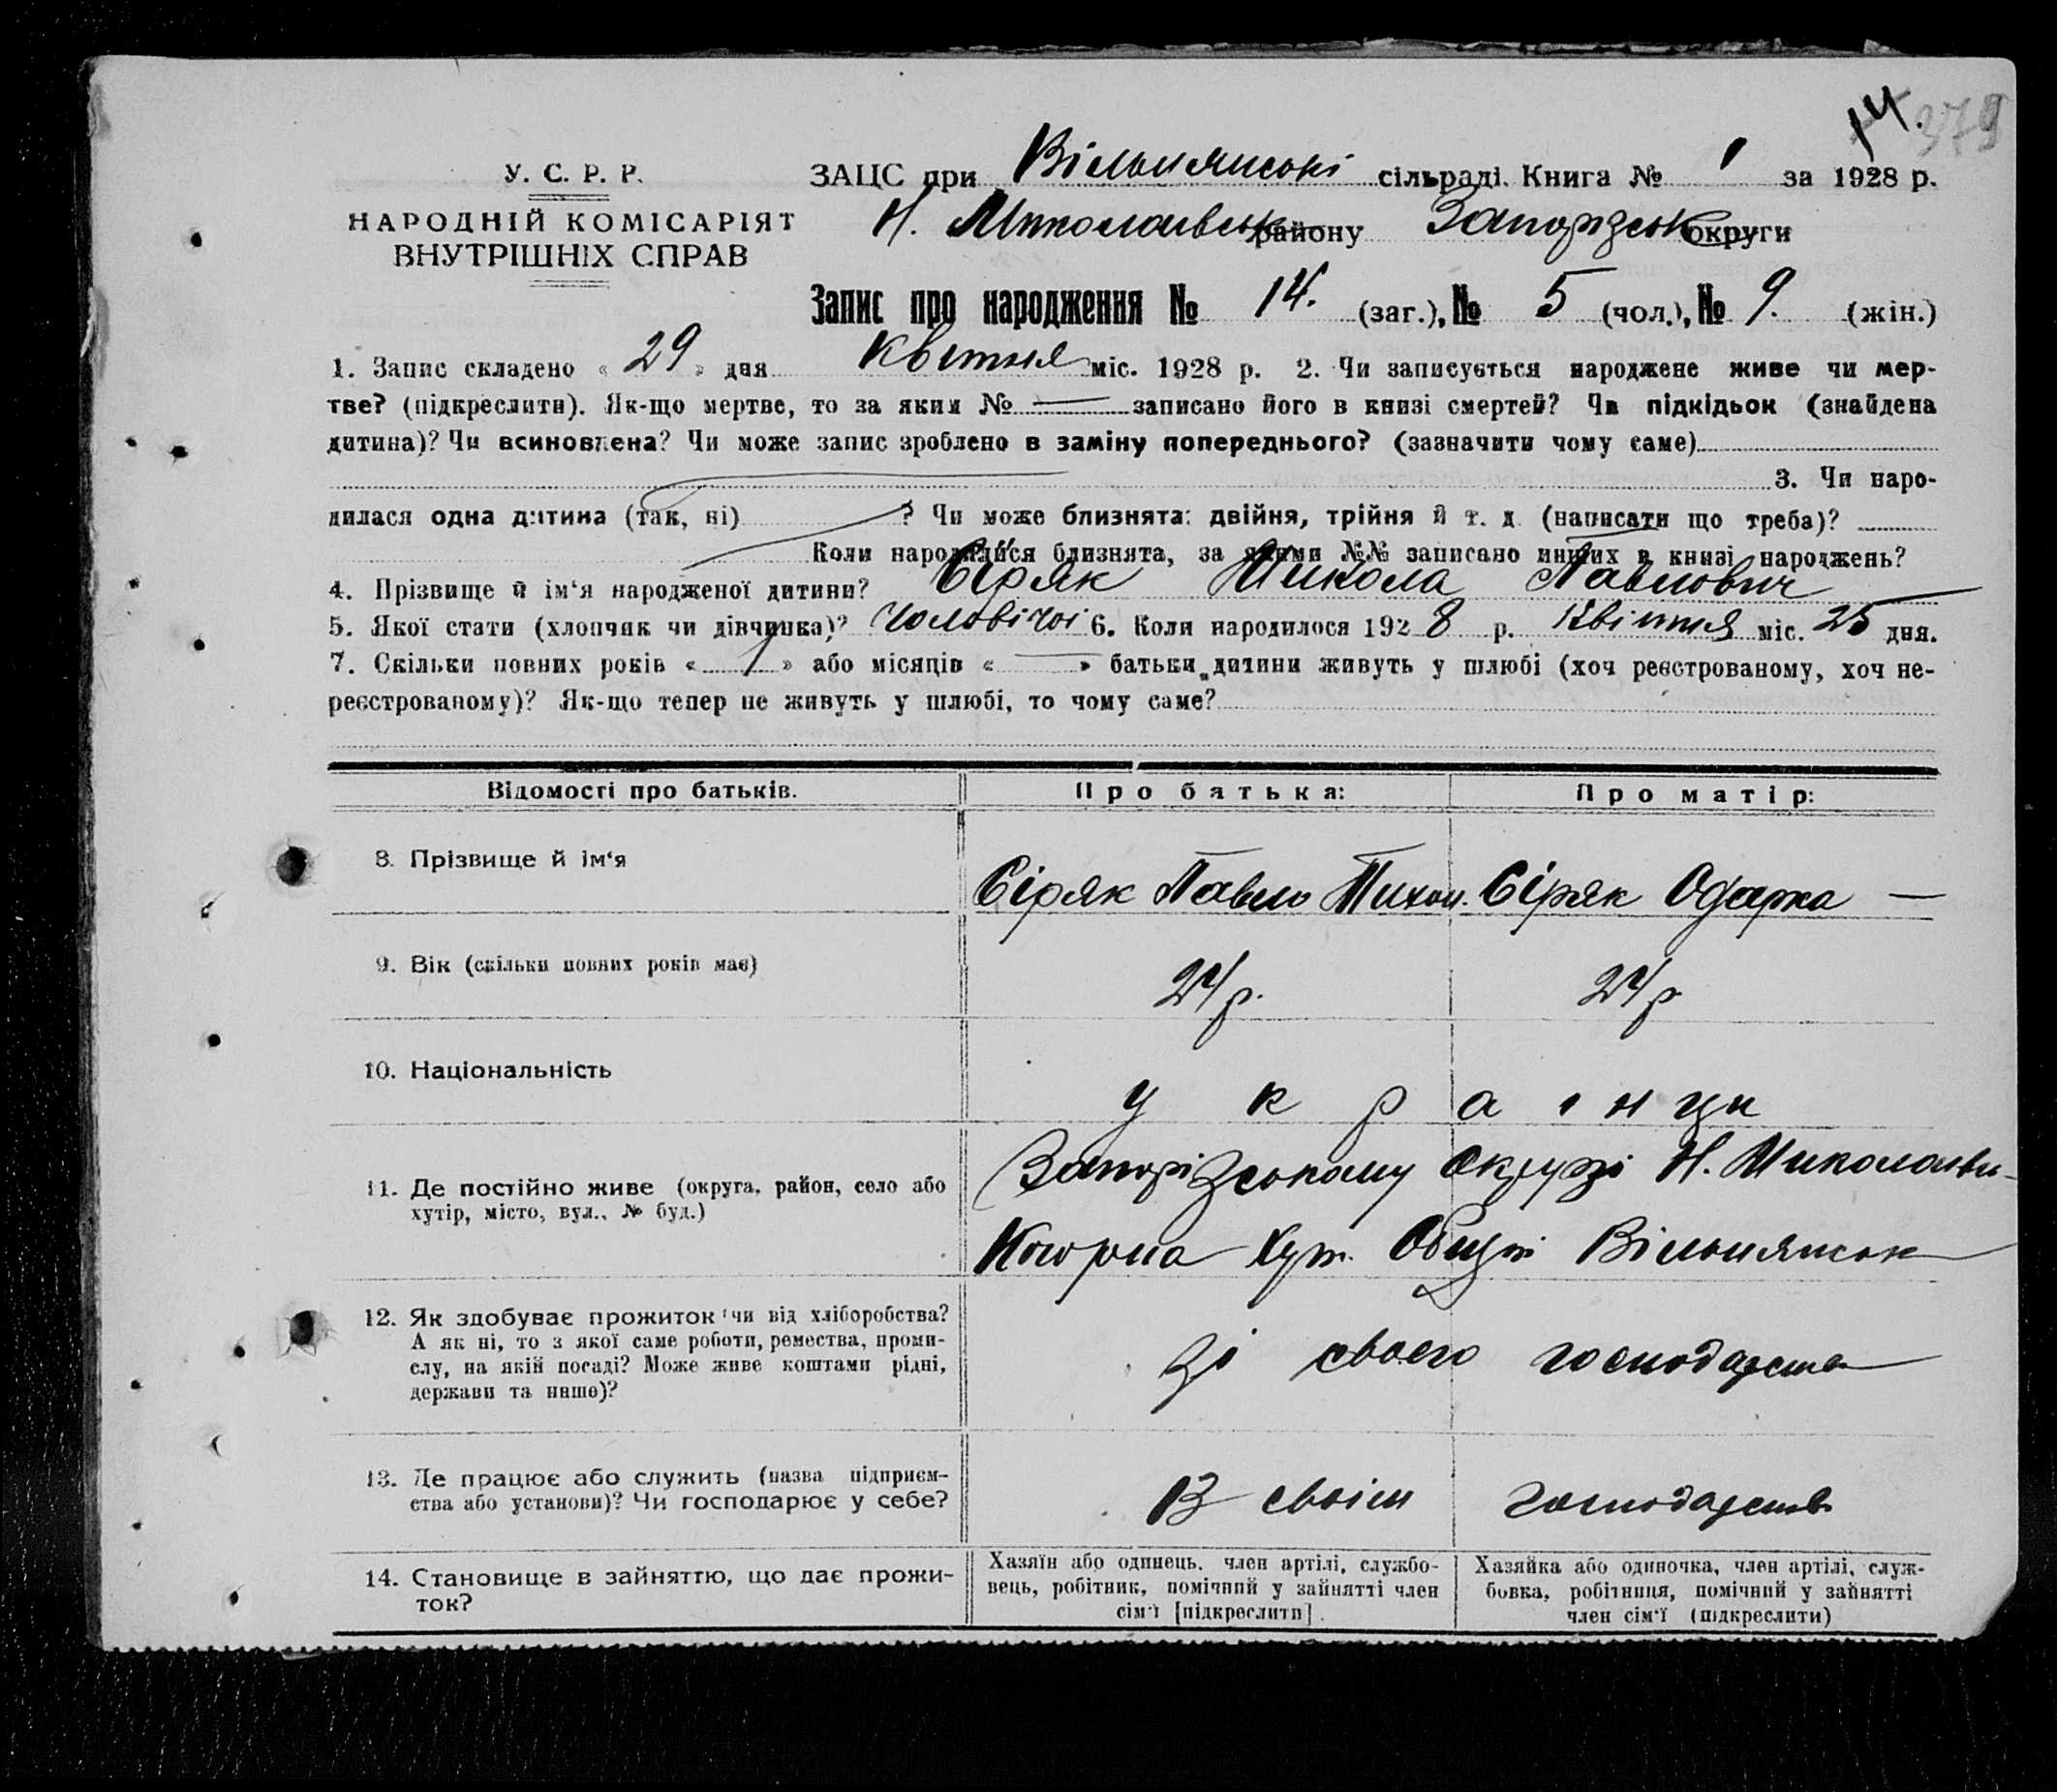 14. 379
У. С. Р. Р.
НАРОДНІЙ КОМІСАРІЯТ
ВНУТРІШНІХ СПРАВ
ЗАЦС при Вільнянські сільраді. Книга № 1 за 1928 р.
Н. Миколаївськ району Запорізськ округи
Запис про народження № 14. (заг.), № 5 (чол.), № 9. (жін.)
1. Запис складено « 29 » дня Квітня міс. 1928 р. 2. Чи записується народжене живе чи мер-
тве? (підкреслити). Як-що мертве, то за яким № — записано його в книзі смертей? Чи підкідьок (знайдена
дитина)? Чи всиновлена? Чи може запис зроблено в заміну попереднього? (зазначити чому саме)
3. Чи наро-
дилася одна дитина (так, ні) ? Чи може близнята: двійня, трійня й т. д. (написати що треба)?
Коли народилися близнята, за якими №№ записано инших в книзі народжень?
4. Прізвище й ім‘я народженої дитини? Сіряк Микола Павлович
5. Якої стати (хлопчик чи дівчинка)? Чоловічої 6. Коли народилося 1928 р. Квітня міс. 25 дня.
7. Скільки повних років « 1 » або місяців « — » батьки дитини живуть у шлюбі (хоч реєстрованому, хоч не-
реєстрованому)? Як-що тепер не живуть у шлюбі, то чому саме?
Відомості про батьків. Про батька: Про матір:
8. Прізвище й ім‘я Сіряк Павло Тихон. Сіряк Одарка —
9. Вік (скільки повних років має) 24 р. 24 р
10. Національність українци
11. Де постійно живе (округа, район, село або
хутір, місто, вул., № буд.)
Запорізському окрузі Н. Миколаївн-
Хут. Вільнянськ
12. Як здобуває прожиток (чи від хліборобства?
А як ні, то з якої саме роботи, ремества, проми-
слу, на якій посаді? Може живе коштами рідні,
держави та инше)?
Зі своего господарства
13. Де працює або служить (назва підприєм-
ства або установи)? Чи господарює у себе?
В своїм господарств
14. Становище в зайняттю, що дає прожи-
ток?
Хазяїн або одинець, член артілі, службо-
вець, робітник, помічний у зайнятті член
сім‘ї [підкреслити].
Хазяйка або одиночка, член артілі, служ-
бовка, робітниця, помічний у зайнятті
член сім‘ї (підкреслити)